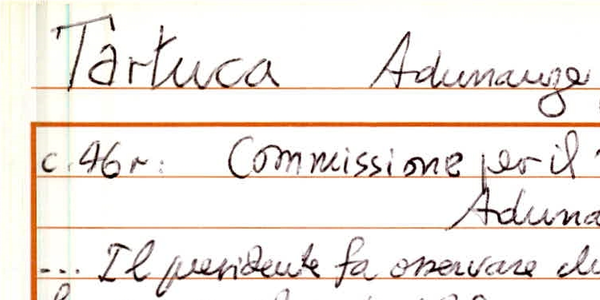 Tartuca Adunanze
c. 46r: Commissione per il
Aduna
... Il presidente fa osservare che